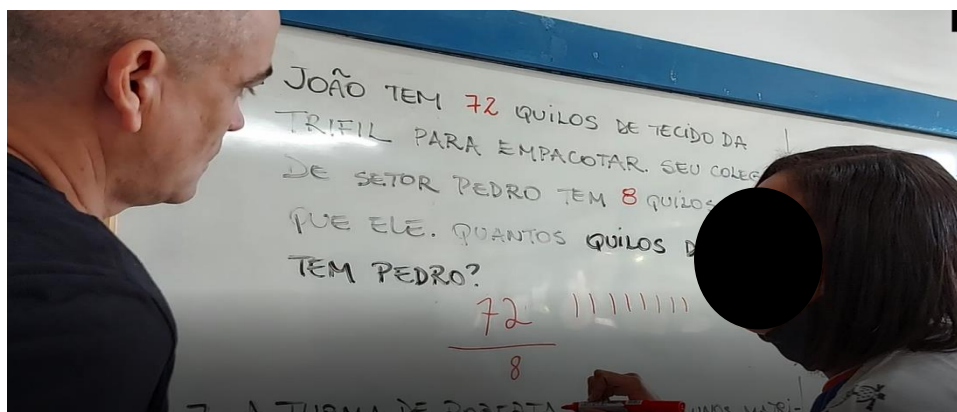 JOÃO TEM 72 QUILOS DE TECIDO DA
TRIFIL PARA EMPACOTAR. SEU COLEG
DE SETOR PEDRO TEM 8 QUILOS
QUE ELE. QUANTOS QUILOS D
TEM PEDRO?
72
8
A TURMA DE ROBERTA